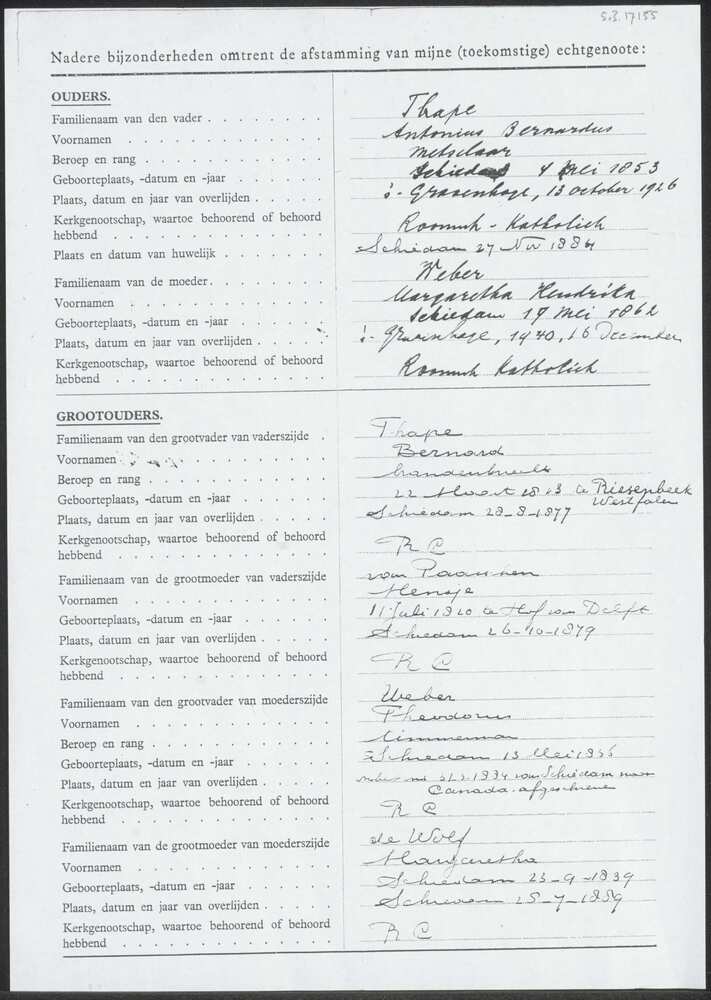 S.3. 17155
Nadere bijzonderheden omtrent de afstamming van mijne (toekomstige) echtgenoote:
OUDERS.
Familienaam van den vader . . . . . . . . Thape
Voornamen . . . . . . . . . . Antonius Bernardus
Beroep en rang . . . . . . . . . Metselaar
Geboorteplaats, -datum en -jaar . . . . . Schiedam 4 Mei 1853
Plaats, datum en jaar van overlijden . . . . . 's-Gravenhage, 13 october 1926
Kerkgenootschap, waartoe behoorend of behoord
hebbend . . . . . . . . . . . Roomsch-Katholiek
Plaats en datum van huwelijk . . . . . . Schiedam 27 Nov 1884
Familienaam van de moeder . . . . . . . Weber
Voornamen . . . . . . . . . . Margaretha Hendrika
Geboorteplaats, -datum en -jaar . . . . . Schiedam 19 Mei 1862
Plaats, datum en jaar van overlijden . . . . . 's-Gravenhage, 1940, 16 December
Kerkgenootschap, waartoe behoorend of behoord
hebbend . . . . . . . . . . . Roomsch Katholiek
GROOTOUDERS.
Familienaam van den grootvader van vaderszijde . Thape
Voornamen . . . . . . . . . . Bernard
Beroep en rang . . . . . . . . .
Geboorteplaats, -datum en -jaar . . . . . 22 Maart te Riesenbeck
Westfalen
Plaats, datum en jaar van overlijden . . . . . Schiedam 28-8-1877
Kerkgenootschap, waartoe behoorend of behoord
hebbend . . . . . . . . . . . R C
Familienaam van de grootmoeder van vaderszijde van Paasschen
Voornamen . . . . . . . . . . Mensje
Geboorteplaats, -datum en -jaar . . . . . 11 Juli 1820 te Hof van Delft
Plaats, datum en jaar van overlijden . . . . . Schiedam 26-10-1879
Kerkgenootschap, waartoe behoorend of behoord
hebbend . . . . . . . . . . . R C
Familienaam van den grootvader van moederszijde Weber
Voornamen . . . . . . . . . . Theodorus
Beroep en rang . . . . . . . . . timmerman
Geboorteplaats, -datum en -jaar . . . . . Schiedam 13 Mei
Plaats, datum en jaar van overlijden . . . . . van Schiedam naar
Canada afgeschreven
Kerkgenootschap, waartoe behoorend of behoord
hebbend . . . . . . . . . . . R C
Familienaam van de grootmoeder van moederszijde de Wolf
Voornamen . . . . . . . . . . Margaretha
Geboorteplaats, -datum en -jaar . . . . . Schiedam 23-9-1839
Plaats, datum en jaar van overlijden . . . . . Schiedam 25-7-1889
Kerkgenootschap, waartoe behoorend of behoord
hebbend . . . . . . . . . . . R C